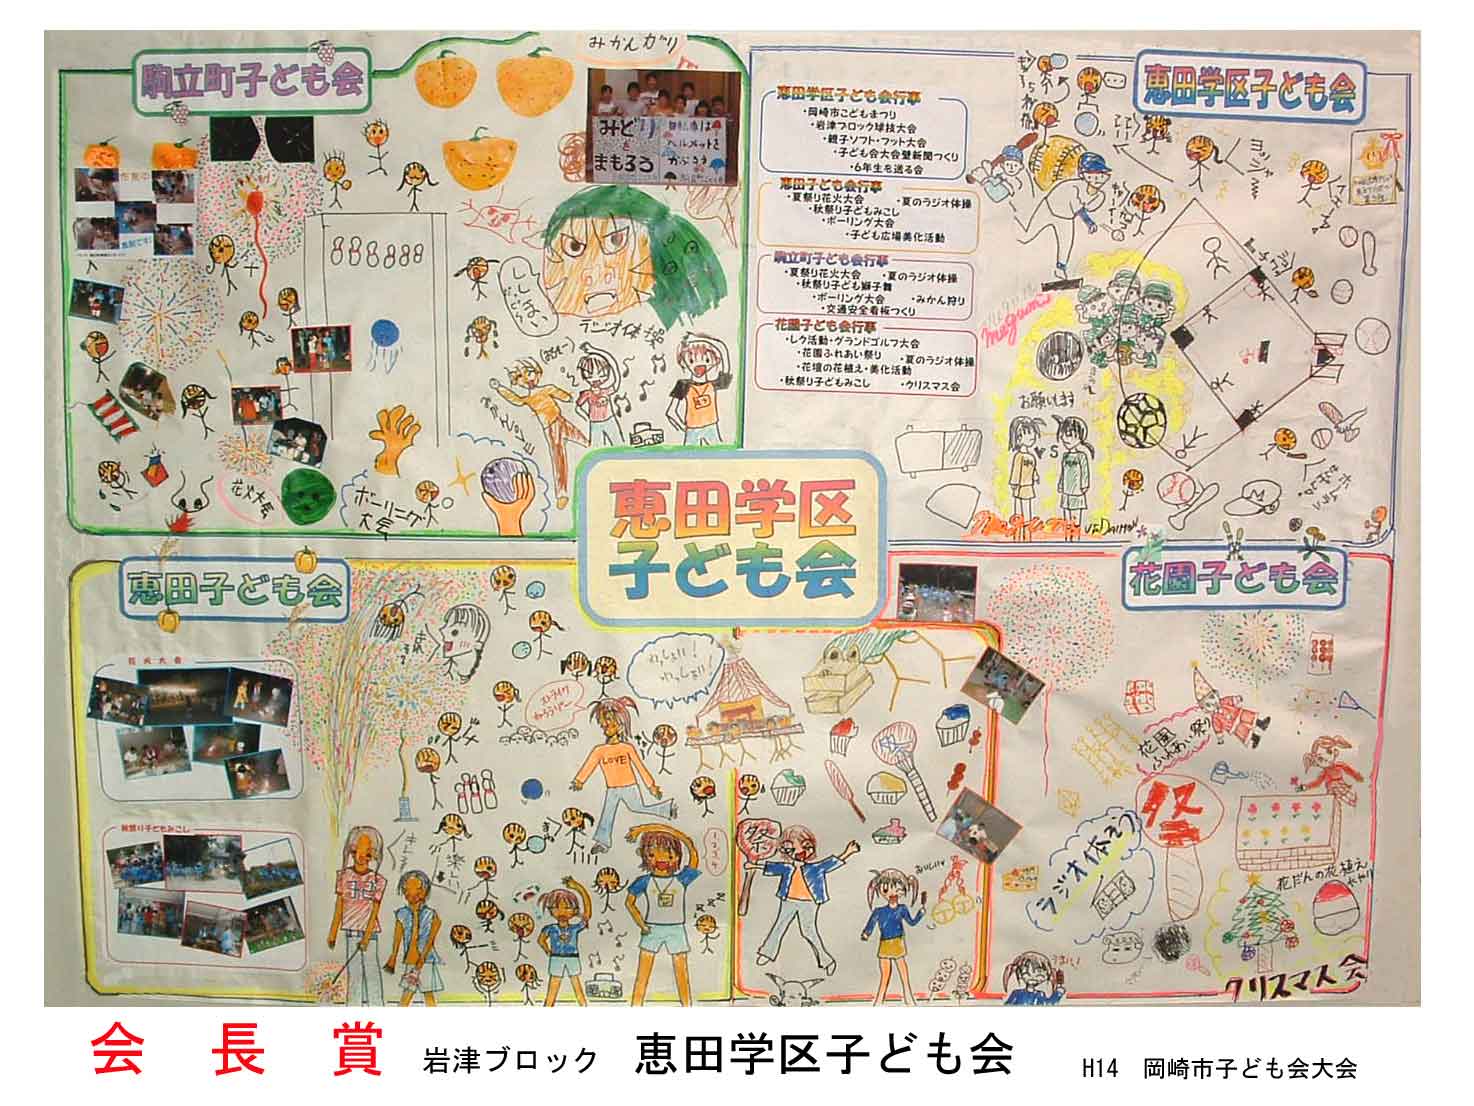 駒立町子ども会
みかんがり
みどりを
まもろう
自転車は
ヘルメットを
かぶろう
ラジオ体操
花火大会
ボーリング
大会
恵田学区子ども会行事
・岡崎市こどもまつり
・岩津ブロック球技大会
・親子ソフト・フット大会
・子ども会大会壁新聞づくり
・6年生を送る会
恵田子ども会行事
・夏祭り花火大会　・夏のラジオ体操
・秋祭り子どもみこし
・ボーリング大会
・子ども広場美化活動
駒立町子ども会行事
・夏祭り花火大会　・夏のラジオ体操
・秋祭り子ども獅子舞
・ボーリング大会　・みかん狩り
・交通安全看板づくり
花園子ども会行事
・レク活動・グランドゴルフ大会
・花園ふれあい祭り　・夏のラジオ体操
・花壇の花植え・美化活動
・秋祭り子どもみこし　・クリスマス会
恵田学区子ども会
megumi
お願いします
VS
恵田学区
子ども会
恵田子ども会
花火大会
秋祭り子どもみこし
わっしょい!
わっしょい!
LOVE
楽しい
1.2.3.4
祭
おいしい
花園子ども会
花園
ふれあい祭り
祭
ラジオ体そう
花だんの花植え
うまい
クリスマス会
会長賞　岩津ブロック　恵田学区子ども会　H14　岡崎市子ども会大会